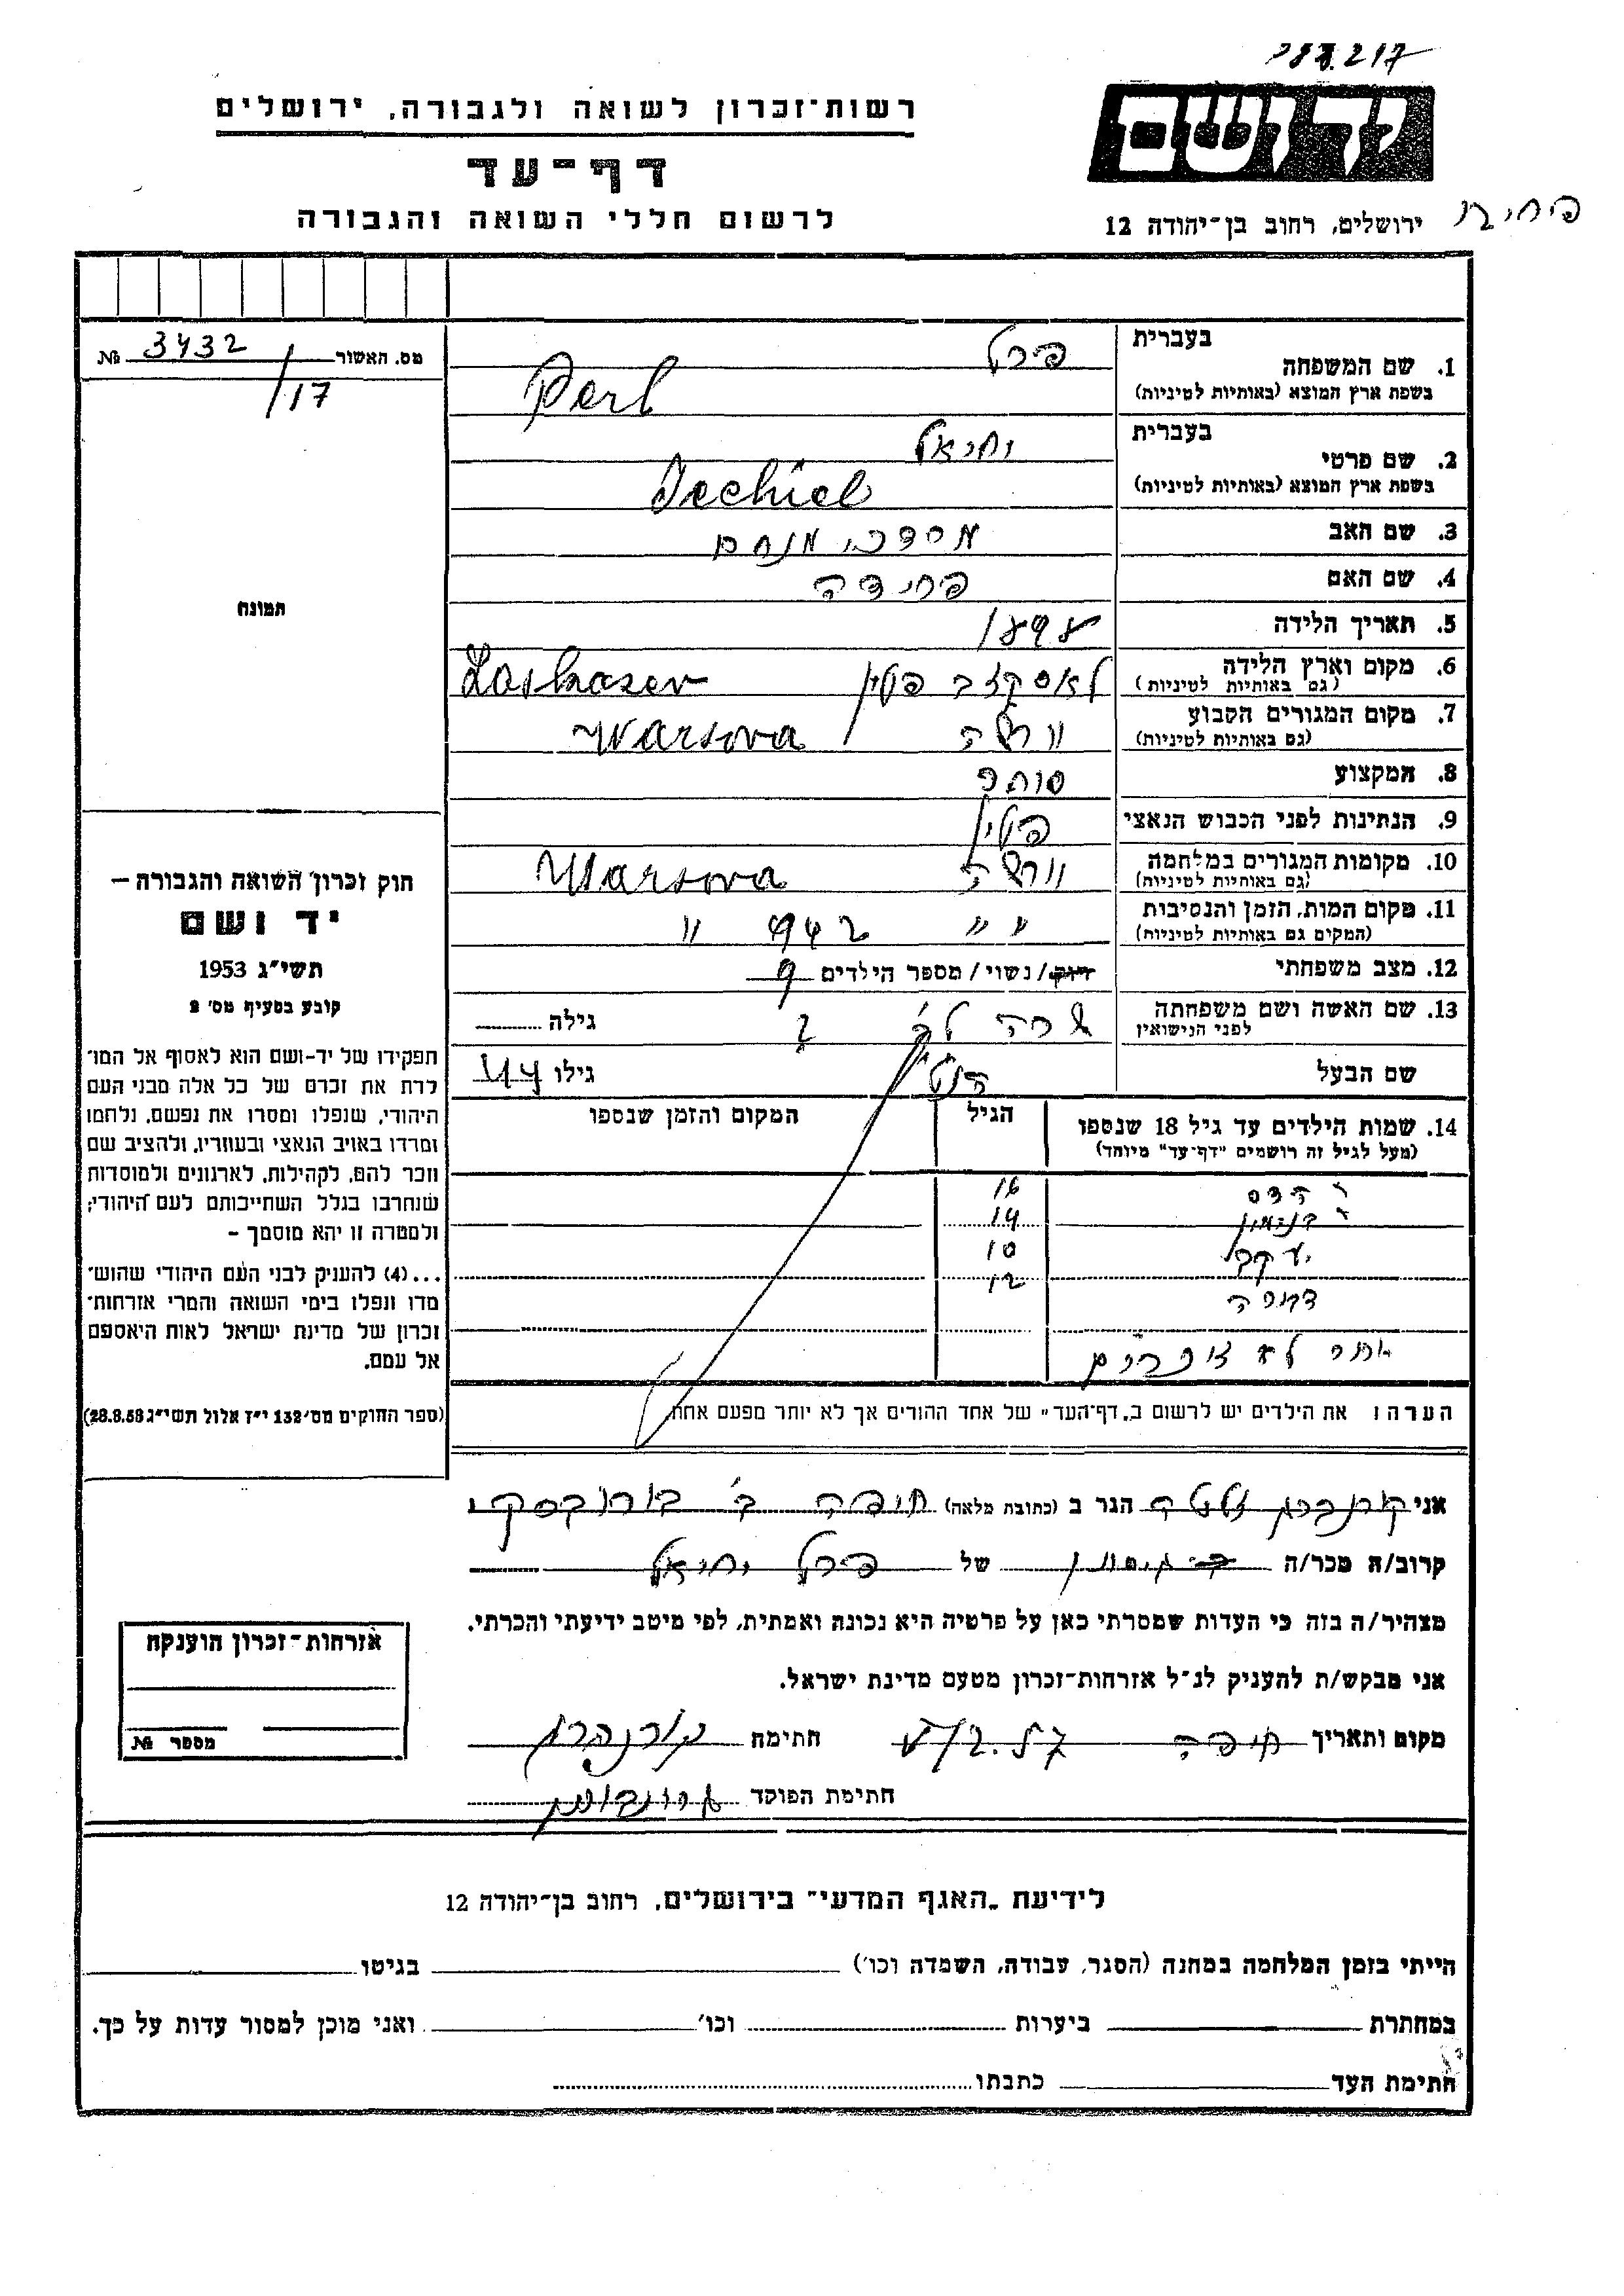 רשות־זכרון לשואה ולגבורה, ירושלים
יד ושם
דף־עד
לרשום חללי השואה והגבורה
ירושלים, רחוב בן־יהודה 12
מס. האשור 3432 №
/17
תמונה
חוק זכרון השואה והגבורה —
יד ושם
תשי״ג 1953
קובע בסעיף מס׳ 2
תפקידו של יד־ושם הוא לאסוף אל המו־
לדת את זכרם של כל אלה מבני העם
היהודי, שנפלו ומסרו את נפשם, נלחמו
ומרדו באויב הנאצי ובעוזריו, ולהציב שם
וזכר להם, לקהילות, לארגונים ולמוסדות
שנחרבו בגלל השתייכותם לעם היהודי;
ולמטרה זו יהא מוסמך –
...(4) להעניק לבני העם היהודי שהוש־
מדו ונפלו בימי השואה והמרי אזרחות־
זכרון של מדינת ישראל לאות היאספם
אל עמם.
(ספר החוקים מס׳ 132 י״ז אלול תשי״ג 28.8.53)
בעברית פירל
1. שם המשפחה
בשפת ארץ המוצא (באותיות לטיניות) Perl
בעברית יחיאל
2. שם פרטי
בשפת ארץ המוצא (באותיות לטיניות) Jechiel
3. שם האב מרדכי מנחם
4. שם האם
5. תאריך הלידה 1898
6. מקום וארץ הלידה פולין
(גם באותיות לטיניות)
7. מקום המגורים הקבוע ורשה Warsova
(גם באותיות לטיניות)
8. המקצוע סוחר
9. הנתינות לפני הכבוש הנאצי פולין
10. מקומות המגורים במלחמה ורשה Warsova
(גם באותיות לטיניות)
11. מקום המות, הזמן והנסיבות 942
(המקום גם באותיות לטיניות)
12. מצב משפחתי רווק/נשוי/מספר הילדים 9
13. שם האשה ושם משפחתה שרה גילה
לפני הנישואין
שם הבעל גילו 44
14. שמות הילדים עד גיל 18 שנספו הגיל המקום והזמן שנספו
(מעל לגיל זה רושמים "דף־עד" מיוחד)
הדס 16
בנימין 14
יעקב 10
דבורה 12
הערה: את הילדים יש לרשום ב„דף־העד" של אחד ההורים אך לא יותר מפעם אחת.
אני הגר ב (כתובת מלאה) חיפה
קרוב/ה מכר/ה של פירל יחיאל
מצהיר/ה בזה כי העדות שמסרתי כאן על פרטיה היא נכונה ואמתית, לפי מיטב ידיעתי והכרתי.
אני מבקש/ת להעניק לנ״ל אזרחות־זכרון מטעם מדינת ישראל.
מקום ותאריך חיפה חתימה
חתימת הפוקד
אזרחות־זכרון הוענקה
מספר №
לידיעת „האגף המדעי" בירושלים, רחוב בן־יהודה 12
הייתי בזמן המלחמה במחנה (הסגר, עבודה, השמדה וכו׳) בגיטו
במחתרת ביערות וכו׳ ואני מוכן למסור עדות על כך.
חתימת העד כתבתו